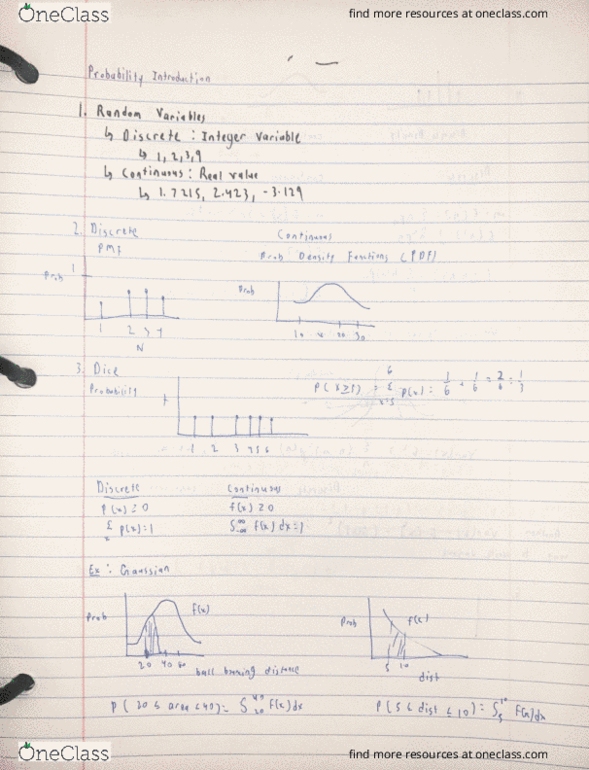 OneClass
find more resources at oneclass.com
Probability Introduction
1. Random Variables
↳ Discrete : Integer Variable
↳ 1, 2, 3, 9
↳ Continuous : Real value
↳ 1.7215, 2.423, -3.129
2. Discrete
Continuous
PMF
Prob Density Functions (PDF)
Prob
1
Prob
1 2 3 4
N
3. Dice
Probability
P(x≥5) = 6 Σ x=5 P(x) = 1/6 + 1/6 = 2/6 = 1/3
1 2 3 4 5 6
Discrete
Continuous
P(x) ≥ 0
f(x) ≥ 0
Σ x P(x) = 1
∫ -∞ ∞ f(x) dx = 1
Ex : Gaussian
Prob
f(x)
Prob
f(x)
20 40
5 10
ball distance
dist
P( 20 ≤ area ≤ 40) = ∫ 20 40 f(x) dx
P( 5 ≤ dist ≤ 10) = ∫ 5 10 f(x) dx
OneClass
find more resources at oneclass.com